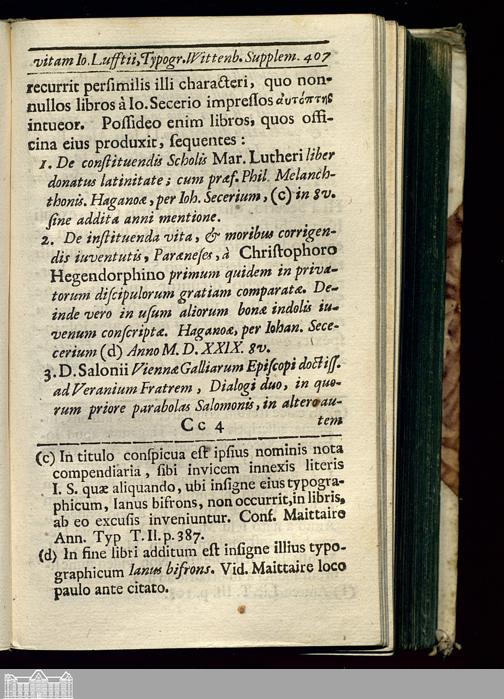 vitam Io. Lufftii, Typogr. Wittenb. Supplem. 407
recurrit persimilis illi characteri, quo non-
nullos libros à Io. Secerio impressos αυτόπτης
intueor. Possideo enim libros, quos offi-
cina eius produxit, sequentes :
1. De constituendis Scholis Mar. Lutheri liber
donatus latinitate ; cum præf. Phil. Melanch-
thonis. Haganoæ, per Ioh. Secerium, (c) in 8v.
sine addita anni mentione.
2. De instituenda vita, & moribus corrigen-
dis iuventutis, Paræneses, à Christophoro
Hegendorphino primum quidem in priva-
torum discipulorum gratiam comparatæ. De-
inde vero in usum aliorum bonæ indolis iu-
venum conscriptæ. Haganoæ, per Iohan. Sece-
cerium (d) Anno M. D. XXIX. 8v.
3. D. Salonii Viennæ Galliarum Episcopi doctiss.
ad Veranium Fratrem, Dialogi duo, in quo-
rum priore parabolas Salomonis, in altero au-
Cc 4 tem
(c) In titulo conspicua est ipsius nominis nota
compendiaria, sibi invicem innexis literis
I. S. quæ aliquando, ubi insigne eius typogra-
phicum, Ianus bifrons, non occurrit, in libris,
ab eo excusis inveniuntur. Conf. Maittaire
Ann. Typ T. II. p. 387.
(d) In fine libri additum est insigne illius typo-
graphicum Ianus bifrons. Vid. Maittaire loco
paulo ante citato.